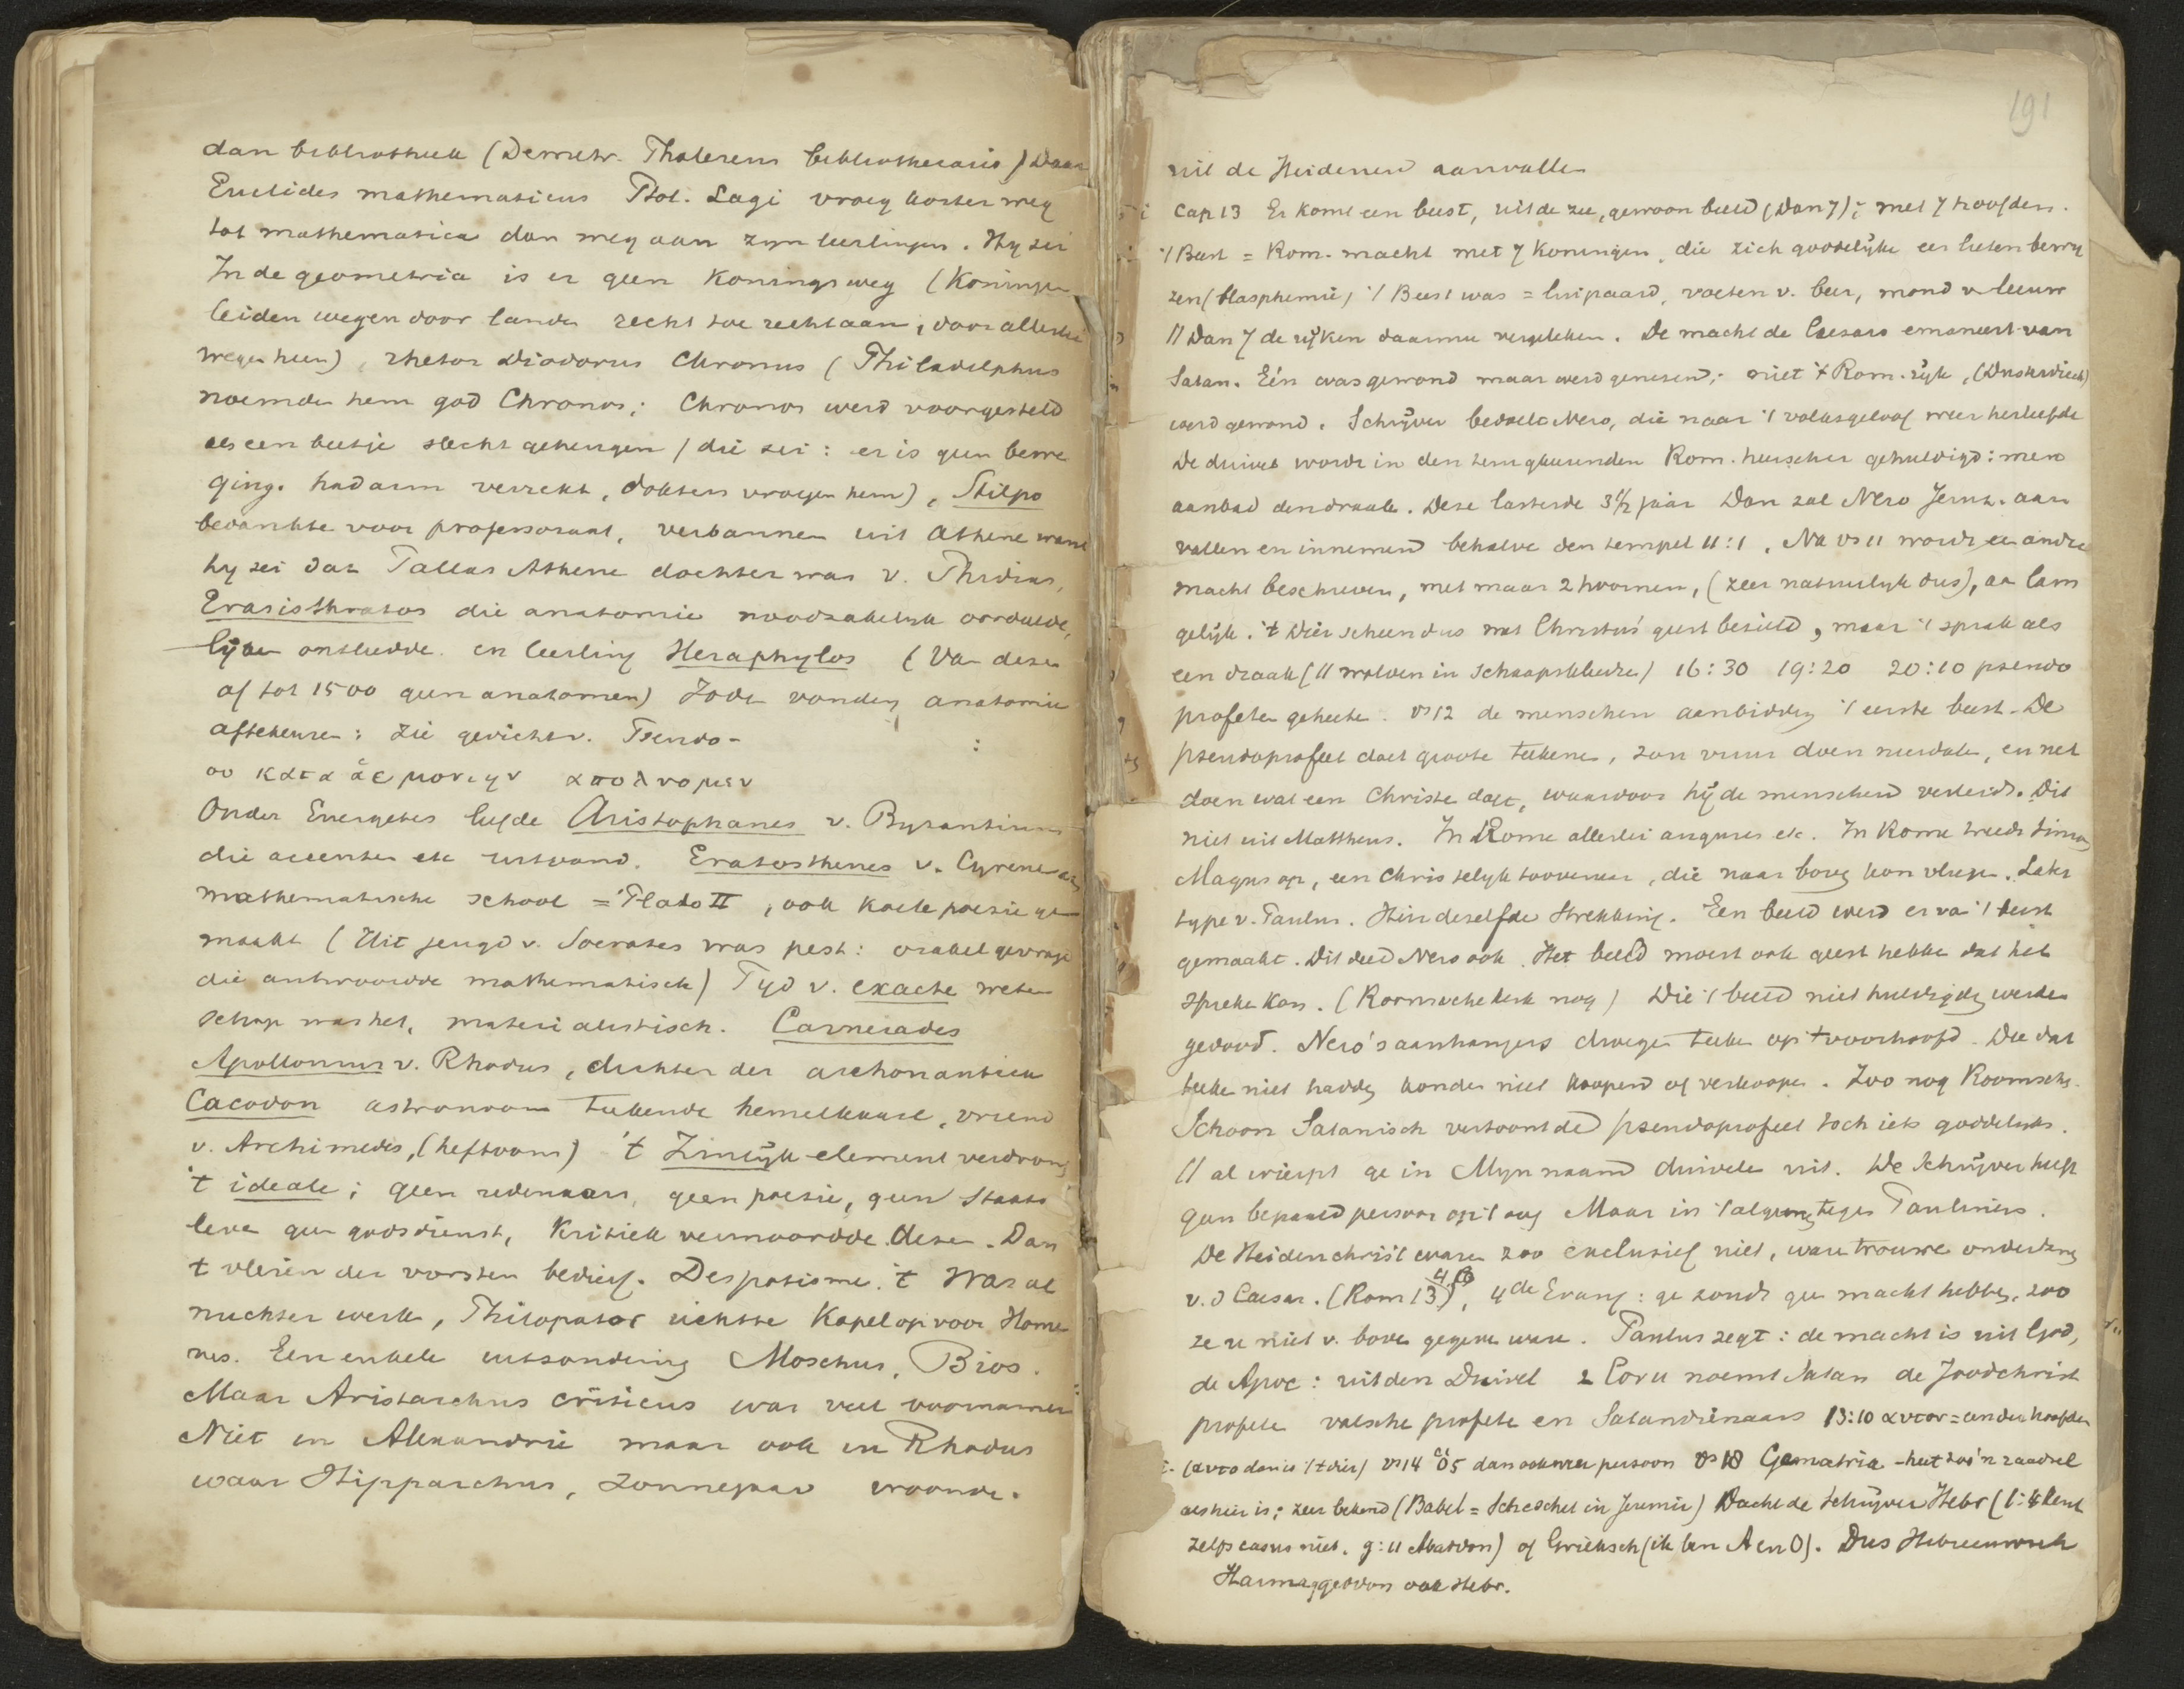 dan bibliotheek (Demetr. Phalereus bibliothecaris) Daar
Euclides mathematicus Ptol. Lagi vroeg korter weg
tot mathematica dan weg aan zyn leerlingen. Hy zei
In de geometria is er geen Koningsweg (Koningen
leiden wegen door landen recht toe recht aan, door allerlei
wegen heen), rhetor Diodorus Chronus (Philadelphus
noemde hem god Chronos; Chronos werd voorgesteld
als een beetje slecht geheugen / die zei: er is geen bewe
ging. had arm verrekt, dokters vroegen hem), Stilpo
bedankte voor professoraat, verbannen uit Athene want
hy zei dat Pallas Athene dochter was v. Phidias,
Erasisthratos die anatomie noodzakelyk oordeelde,
lyken ontleedde. en leerling Heraphylos (Van deze
af tot 1500 geen anatomen) Joden vonden anatomie
afschuw: zie gedicht v. Pseudo-
Onder Euergetes leefde Aristophanes v. Byzantium
die accenten etc uitvond. Eratosthenes v. Cyrene
mathematische school = Plato II, ook koele poesie ge
maakt (Uit jeugd v. Socrates was pest: orakel gevraagd
die antwoordde mathematisch) Tyd v. exacte weten
schap was het, materialistisch. Carneades
Apollonius v. Rhodus, dichter der archonautiek
Cacodon astronoom teekende hemelkaart, vriend
v. Archimedes, (hefboom) 't Zinlijk element verdrong
't ideale; geen redenaars, geen poesie, geen Staats
leven geen godsdienst, Kritiek vermoordde deze. Dan
't vleien der vorsten bedierf. Despotisme. 't Was al
nuchter werk, Philopator richtte Kapel op voor Home
rus. Een enkele uitzondering Moschus, Bios.
Maar Aristarchus criticus was veel voornamer
Niet in Alexandrie maar ook in Rhodus
waar Hipparchus, zonnejaar woonde.
191
uit de Heidenen aanvallen
Cap 13 Er komt een beest, uit de zee, gewoon beeld (Dan 7); met 7 hoofden.
't Beest = Rom. macht met 7 Koningen, die zich goddelijke eer lieten bewy
zen (blasphemie) 't Beest was = luipaard, voeten v. beer, mond v leeuw
// Dan 7 de rijken daarmee vergeleken. De macht de Caesars emaneert van
Satan. Eén was gewond maar werd genezen; niet 't Rom. rijk, (Dusterdieck)
werd gewond. Schrijver bedoelt Nero, die naar 't volksgeloof weer herleefde
De duivel wordt in den terugkeerenden Rom. heerscher gehuldigd: men
aanbad den draak. Deze lasterde 3 1/2 jaar Dan zal Nero Jeruz. aan
vallen en innemen behalve den tempel 11:1. Na vs 11 wordt een andre
macht beschreven, met maar 2 hoornen, (zeer natuurlyk dus), aan lam
gelijk. 't Dier scheen dus met Christus' geest bezield, maar 't sprak als
een draak (// wolven in schaapskleeden) 16:30 19:20 20:10 pseudo
profeten geheeten. vs 12 de menschen aanbidden 't eerste beest. De
pseudoprofeet doet groote teekenen, zou vuur doen neerdalen, en net
doen wat een Christen doet, waardoor hij de menschen verleidt. Dit
niet uit Mattheus. In Rome allerlei augures etc. In Rome treedt Simon
Magus op, een Christelyk toovenaar, die naar boven kon vliegen. Later
type v. Paulus. Hier dezelfde strekking. Een beeld werd er van 't beest
gemaakt. Dit deed Nero ook. Het beeld moest ook geest hebben dat het
spreken kon. (Roomsche kerk nog) Die 't beeld niet huldigden werden
gedood. Nero's aanhangers droegen teeken op 't voorhoofd. Die dat
teeken niet hadden konden niet koopen of verkoopen. Zoo nog Roomschen.
Schoon Satanisch vertoont de pseudoprofeet toch iets goddelyks.
// al werpt ge in Mijn naam duivelen uit. De Schrijver heeft
geen bepaald persoon op 't oog Maar in 't algemeen tegen Pauliners.
De Heidenchrist waren zoo exclusief niet, waren trouwe onderdanen
v.d Caesar. (Rom 13), 4de Evang: ge zoudt geen macht hebben, zoo
ze u niet v. boven gegeven ware. Paulus zegt: de macht is uit God,
de Apoc: uit den Duivel 2 Cor 11 noemt Satan de Joodchrist
profeten valsche profeten en Satandienaars 13:10 αυτον = een der hoofden
(αυτο dan is 't dier) vs 14 ὅς dan ook weer persoon vs 18 Gematria - het zoo'n raadsel
als hier is; zeer bekend (Babel = Scheschel in Jeremie) Dacht de Schrijver Hebr (1:4 kent
zelfs casus niet. 9:11 Abaddon) of Grieksch (ik ben A en O). Dus Hebreeuwsch
Harmaggeddon ook Hebr.